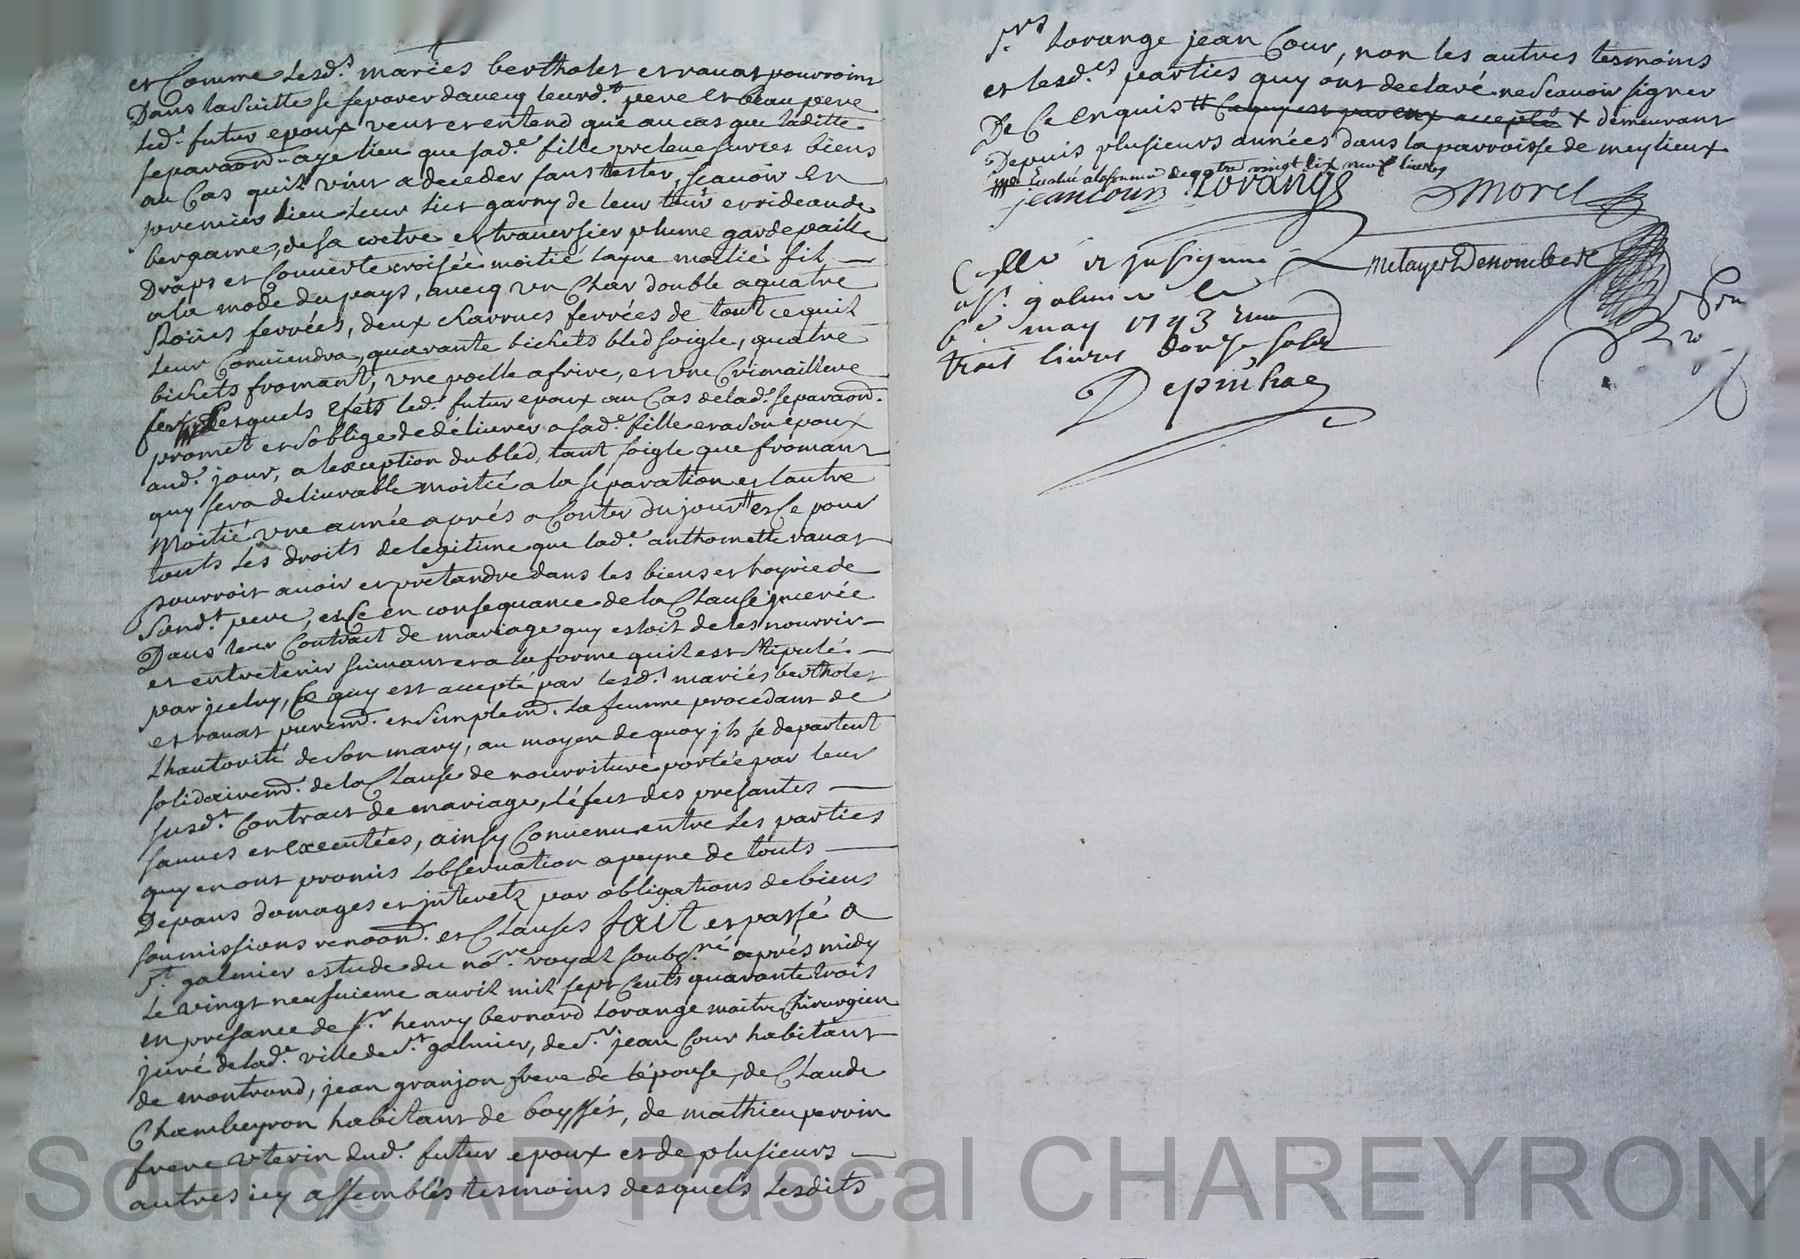 et Comme Lesd.s mariés bertholet et ravat pourroint
Dans la suitte se separer d'avecq leurd.t pere et beau pere
led.t futur epoux veut et entend que au cas que laditte
separaon.d aye lieu que sad.e fille preleve sur ses biens
au Cas quil vint a deceder sans tester, scavoir en
premier lieu leur lict garny de leur tour et rideaude
bergame, de sa coetre et traversier plume gardepaille
Draps et Couverte croisée moitié layne moitié fil
a la mode du pays, avecq un Char double a quatre
Roües ferrées, deux charrues ferrées de tout ce quil
leur Conviendra, quarante bichets bled soigle, quatre
bichets fromant, une poille a frire, et une Crimaillere
fert, Lesquels Efets led.t futur epoux au Cas de lad.e separaon.d
promet et s'oblige de délivrer a sad.e fille et a son epoux
aud.t jour, a l'exception du bled, tant soigle que fromant
quy sera delivrable moitié a la separation et l'autre
Moitié une année aprés a Conter du jour # et Ce pour
touts Les droits de legitime que lad.e anthoinette ravat
pourroit avoir et pretandre dans les biens et hoyrie de
Sond.t pere, et Ce en consequance de la Clause jncerée
Dans leur Contract de mariage quy estoit de les nourrir
et entretenir suivant et a la forme quil est stipulés
par jceluy, Ce quy est accepté par lesd.s mariés bertholet
et ravat purem.d et simplem.d la femme procedant de
L'hautorité de son mary, au moyen de quoy jls se departent
solidairem.d de la Clause de nourriture portée par leur
susd.t Contract de mariage, l'éfect des presantes
sauves et executées, ainsy Convenu entre Les parties
quy en ont promis L'observation a peyne de touts
Depans domages et jnteretz par obligations de biens
soumissions renoon.d et Clauses fait et passé a
s.t galmier estude du no.re royal soubs.né aprés midy
Le vingt neufuieme avril mil sept Cents quarante trois
en presance de s.r henry bernard Lorange maitre Chirurgien
juré de lad.e ville de s.t galmier, de s.r jean Cour habitant
de montrond, jean granjon frere de l'épouse, de Claude
Chambeyron habitant de boysset, de mathieu perrin
frere uterin dud.t futur epoux et de plusieurs
autres icy assemblés tesmoins desquels Lesdits
s.rs Lorange jean Cour, non les autres tesmoins
et lesd.es parties quy ont declaré ne scavoir signer
De Ce enquis # Ce quy est par eux accepté x demeurant
Depuis plusieurs années dans la parroisse de meylieux
Evalué a la somme de quatre vingt dix neuf livres
jean cour Lorange Morel
Metayer Denombert
Collé et jnsigné
a s.t galmier le
may 1743 Reçu
trois livres douze sols
Depinhac
Source AD Pascal CHAREYRON